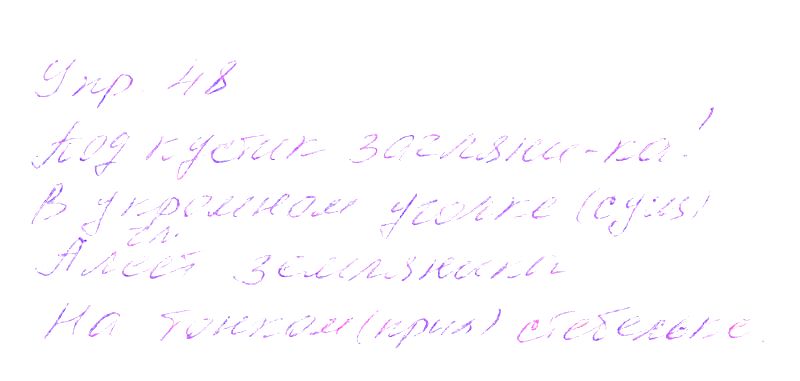 Упр. 48
Под кустик загляни-ка!
В укромном уголке (сущ)
гл.
Алеет земляника
На тонком (прил) стебельке.